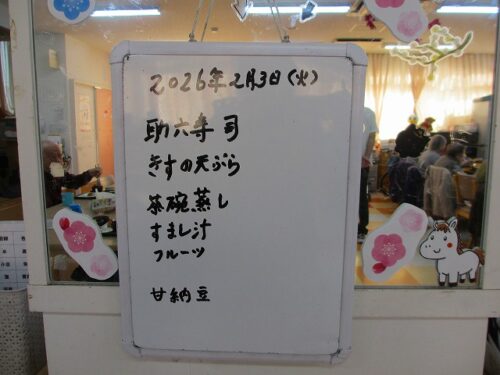 2026年2月3日(火)
助六寿司
きすの天ぷら
茶碗蒸し
すまし汁
フルーツ
甘納豆